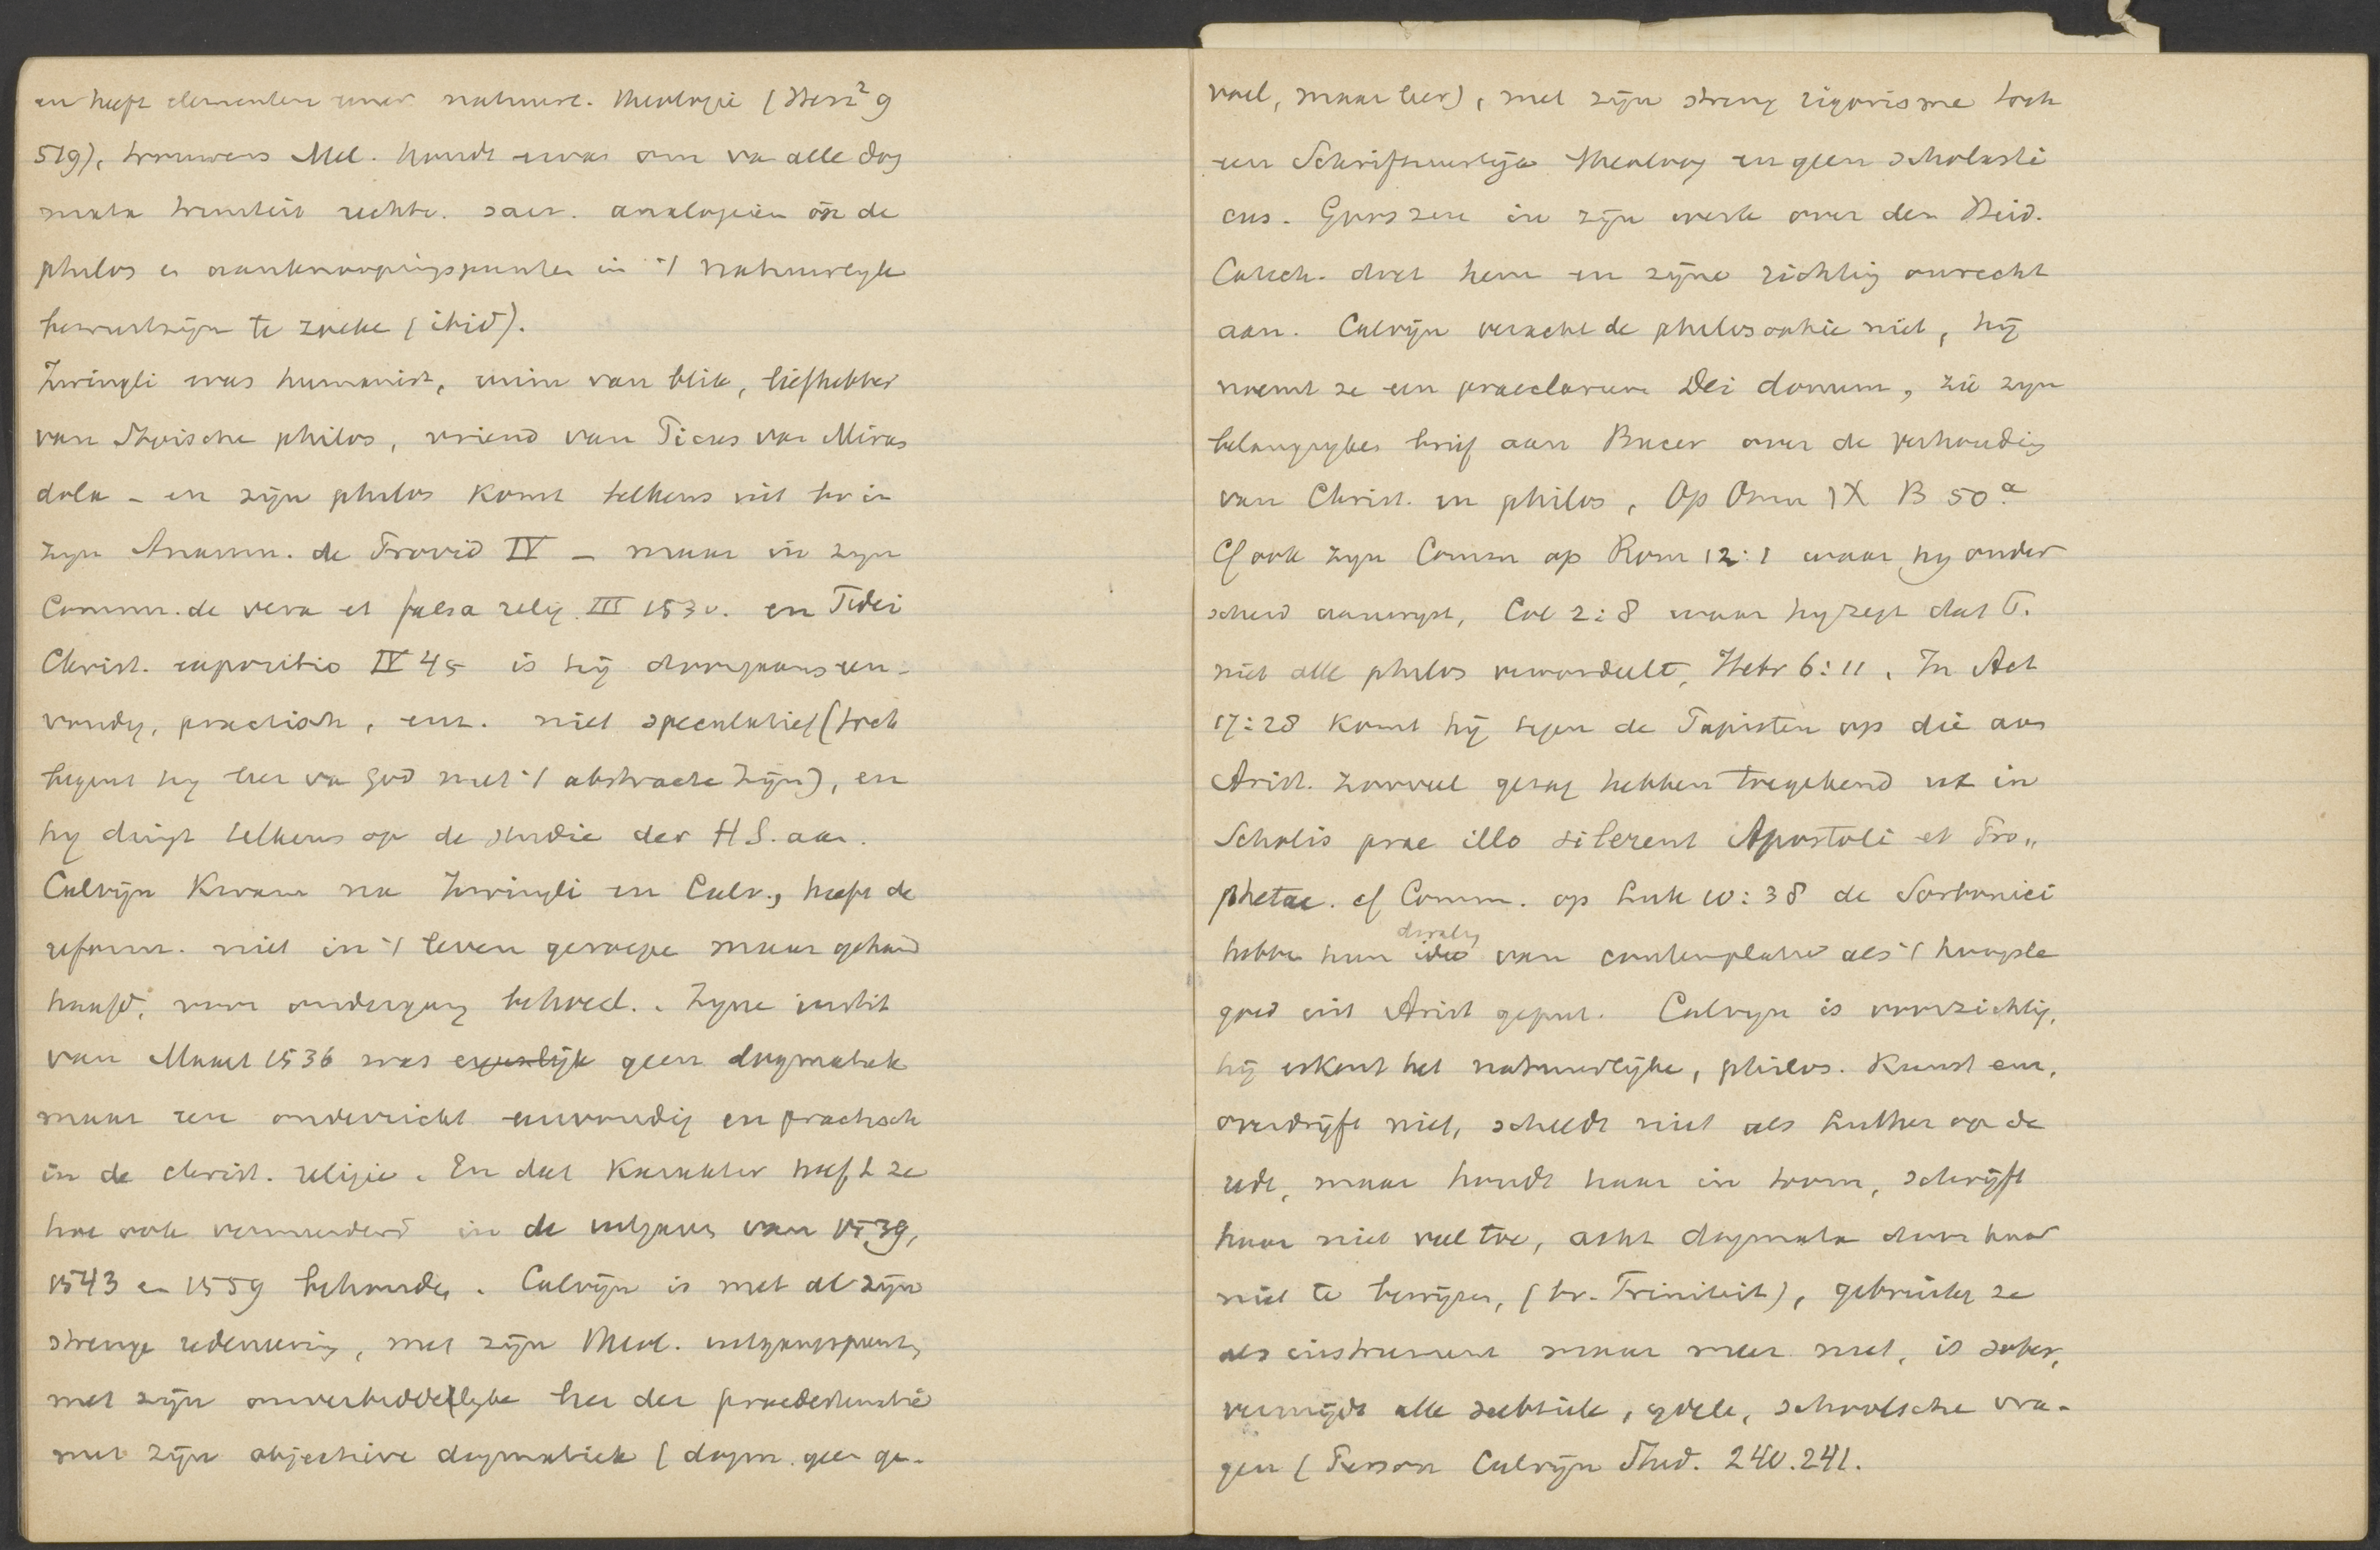 en heeft elementen eener natuurl. theologie (Herz² 9
519), trouwens Mel. houdt ervan om va alle dog
mata triniteit rechtv. sacr. analogieën in de
philos en aanknoopingspunten in 't natuurlyk
bewustzijn te zoeke (ibid).
Zwingli was humanist, ruim van blik, liefhebber
van Stoische philos, vriend van Picus van Miran
dola - en zijn philos komt telkens uit bv in
zyn Anamn. de Provid IV - maar in zyn
Comm. de vera et falsa relig. III 153v. en Fidei
Christ. expositio IV 45 is hij doorgaans een-
voudig, practisch, enz. niet speculatief (toch
begint hy leer va God met 't abstracte Zijn), en
hy dringt telkens op de studie der H S. aan.
Calvijn kwam na Zwingli en Luth., heeft de
reform. niet in 't leven geroepe maar gehand
haafd, voor ondergang behoed. Zyne instit
van Maart 1536 was eigenlijk geen dogmatiek
maar een onderricht eenvoudig en practisch
in de christ. religie. En dat karakter heeft ze
hoe ook vermeerderd in de uitgaves van 1539,
1543 en 1559 behouden. Calvijn is met al zijn
strenge redeneering, met zijn theol. uitgangspunt,
met zijn onverbiddellyke leer der praedestinatie
met zijn objectieve dogmatiek (dogm. geen ge-
voel, maar leer), met zijn streng rigorisme toch
een Schriftuurlijk theoloog en geen scholasti
cus. Gooszen in zijn werk over den Heid.
Catech. doet hem en zijne richting onrecht
aan. Calvijn veracht de philosophie niet, hij
noemt ze een praeclarum Dei donum, zie zyn
belangryken brief aan Bucer over de verhouding
van Christ. en philos, Op Omn IX B 50ª
Cf ook zyn Comm op Rom 12:1 waar hy onder
scheid aanwyst, Col 2:8 waar hy zegt dat P.
niet alle philos veroordeelt, Hebr 6:11. In Act
17:28 komt hij tegen de Papisten op die aan
Arist. zooveel gezag hebben toegekend ut in
Scholis prae illo silerent Apostoli et Pro„
phetae. cf Comm. op Luk 10:38 de Sorbonici
hebbe hun idee van contemplatie als 't hoogste
goed uit Arist geput. Calvyn is voorzichtig,
hij erkent het natuurlijke, philos. Kunst enz,
overdrijft niet, scheldt niet als Luther op de
rede, maar houdt haar in toom, schrijft
haar niet veel toe, acht dogmata door haar
niet te bewijzen, (bv. Triniteit), gebruikt ze
als instrument maar meer niet, is sober,
vermijdt alle subtiele, ydele, schoolsche vra-
gen (Pierson Calvijn Stud. 240.241.